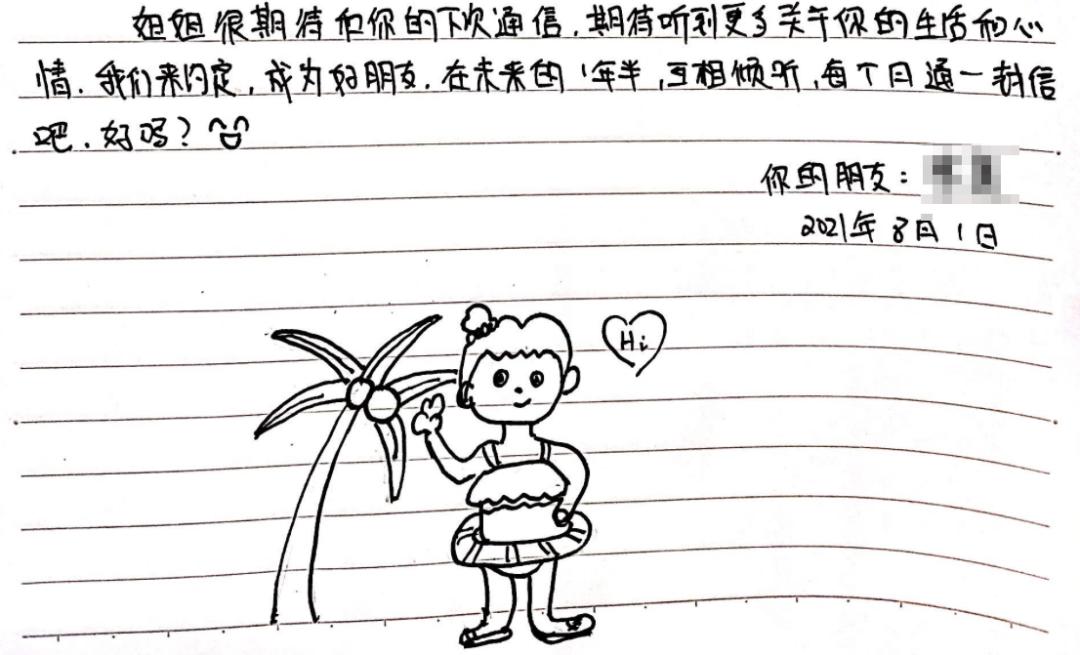 姐姐很期待和你的下次通信，期待听到更多关于你的生活和心
情．我们来约定，成为好朋友．在未来的1年半，互相倾听，每个月通一封信
吧．好吗？
你的朋友：
2021年8月1日
Hi